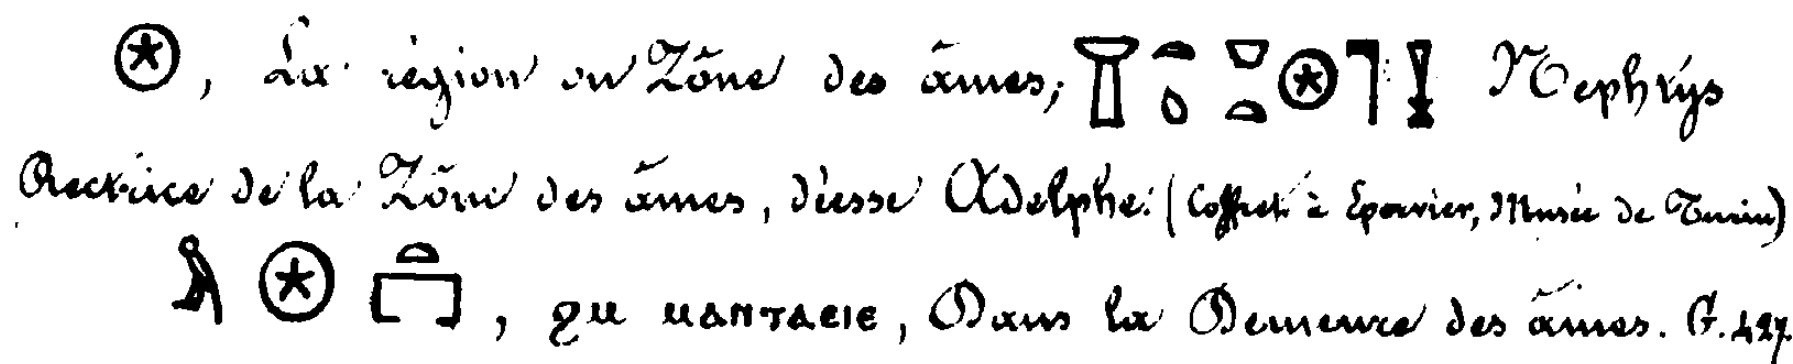 , La région ou Zône des âmes; Nephthys
Rectrice de la Zône des âmes, déesse Adelphe. (Coffret à Epervier, Musée de Turin)
, ϩⲙ ⲙⲁⲛⲧⲁⲉⲓⲉ, Dans la Demeure des âmes. G. 427.